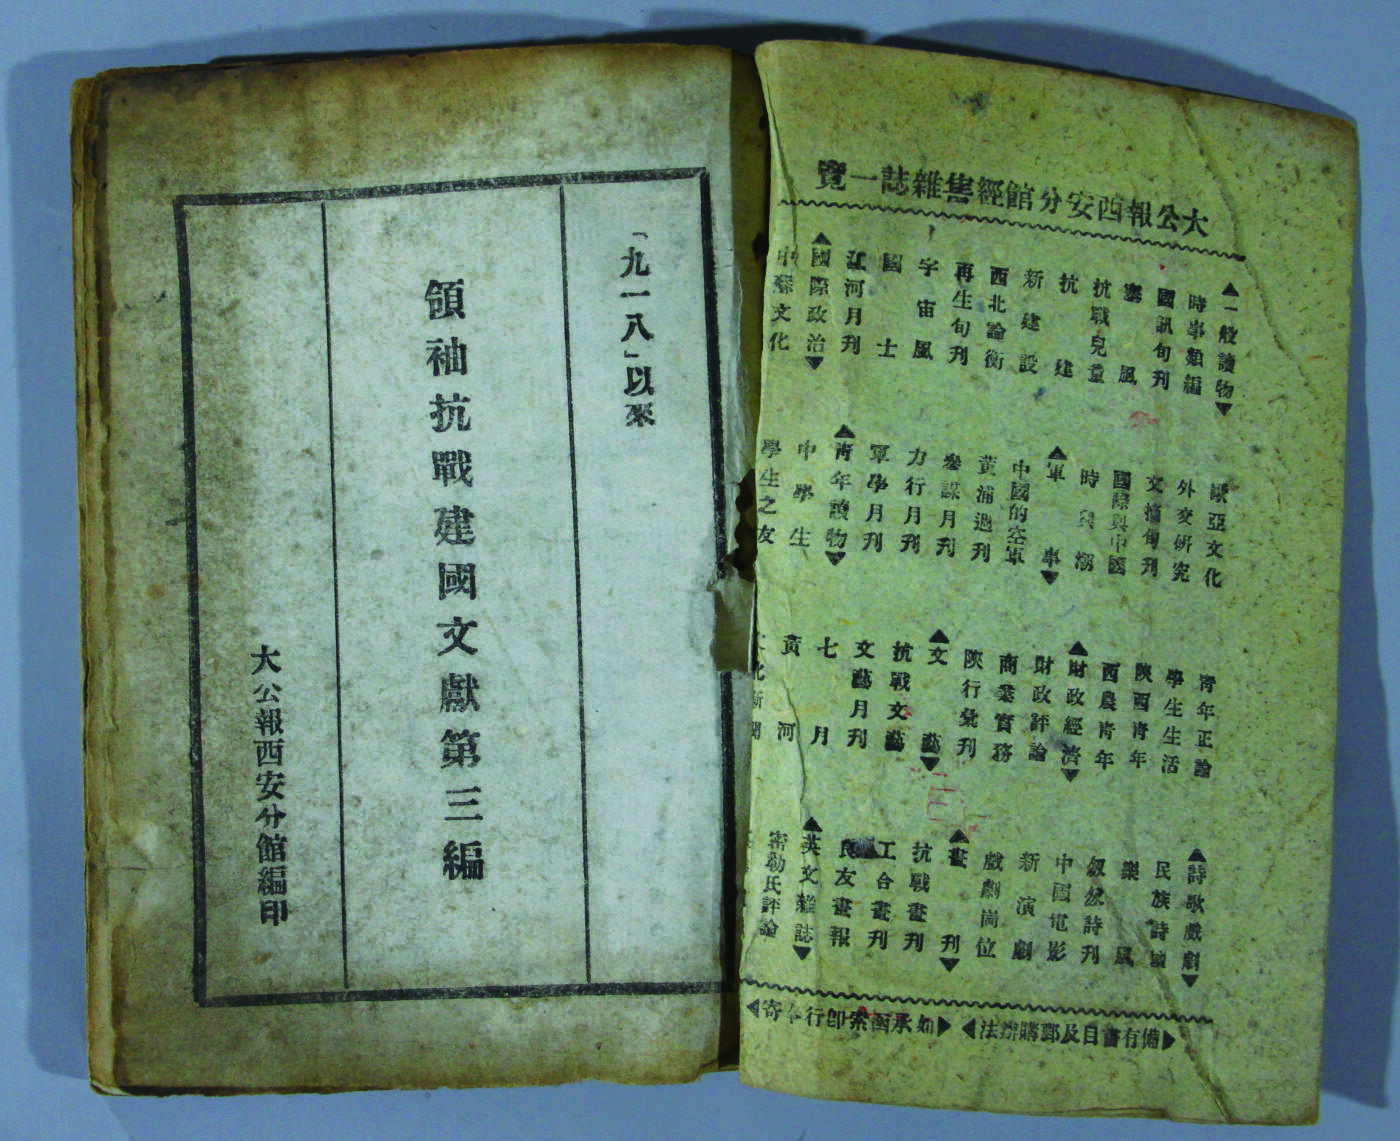 大公報西安分館經售雜誌一覽
▲一般讀物▼
時事類編
國訊旬刊
塞風
抗戰兒童
抗建
新建設
西北論衡
再生旬刊
字宙風
國士
江河月刊
▲國際政治▼
中蘇文化
歐亞文化
外交研究
文摘旬刊
國際與中國
時與潮
▲軍事▼
中國的空軍
黃浦週刊
參謀月刊
力行月刊
軍學月刊
▲青年讀物▼
中學生
學生之友
青年正論
學生生活
陝西青年
西農青年
▲財政經濟▼
財政評論
商業實務
陝行彙刊
▲文藝▼
抗戰文藝
文藝月刊
七月
黃河
化新
▲詩歌戲劇▼
民族詩壇
樂風
詩刊
中國電影
新演劇
戲劇崗位
▲畫刊▼
抗戰畫刊
工合畫刊
良友畫報
▲英文雜誌▼
密勒氏評論
備有書目及郵購辦法
如承函索即行奉寄
「九一八」以來
領袖抗戰建國文獻第三編
大公報西安分館編印